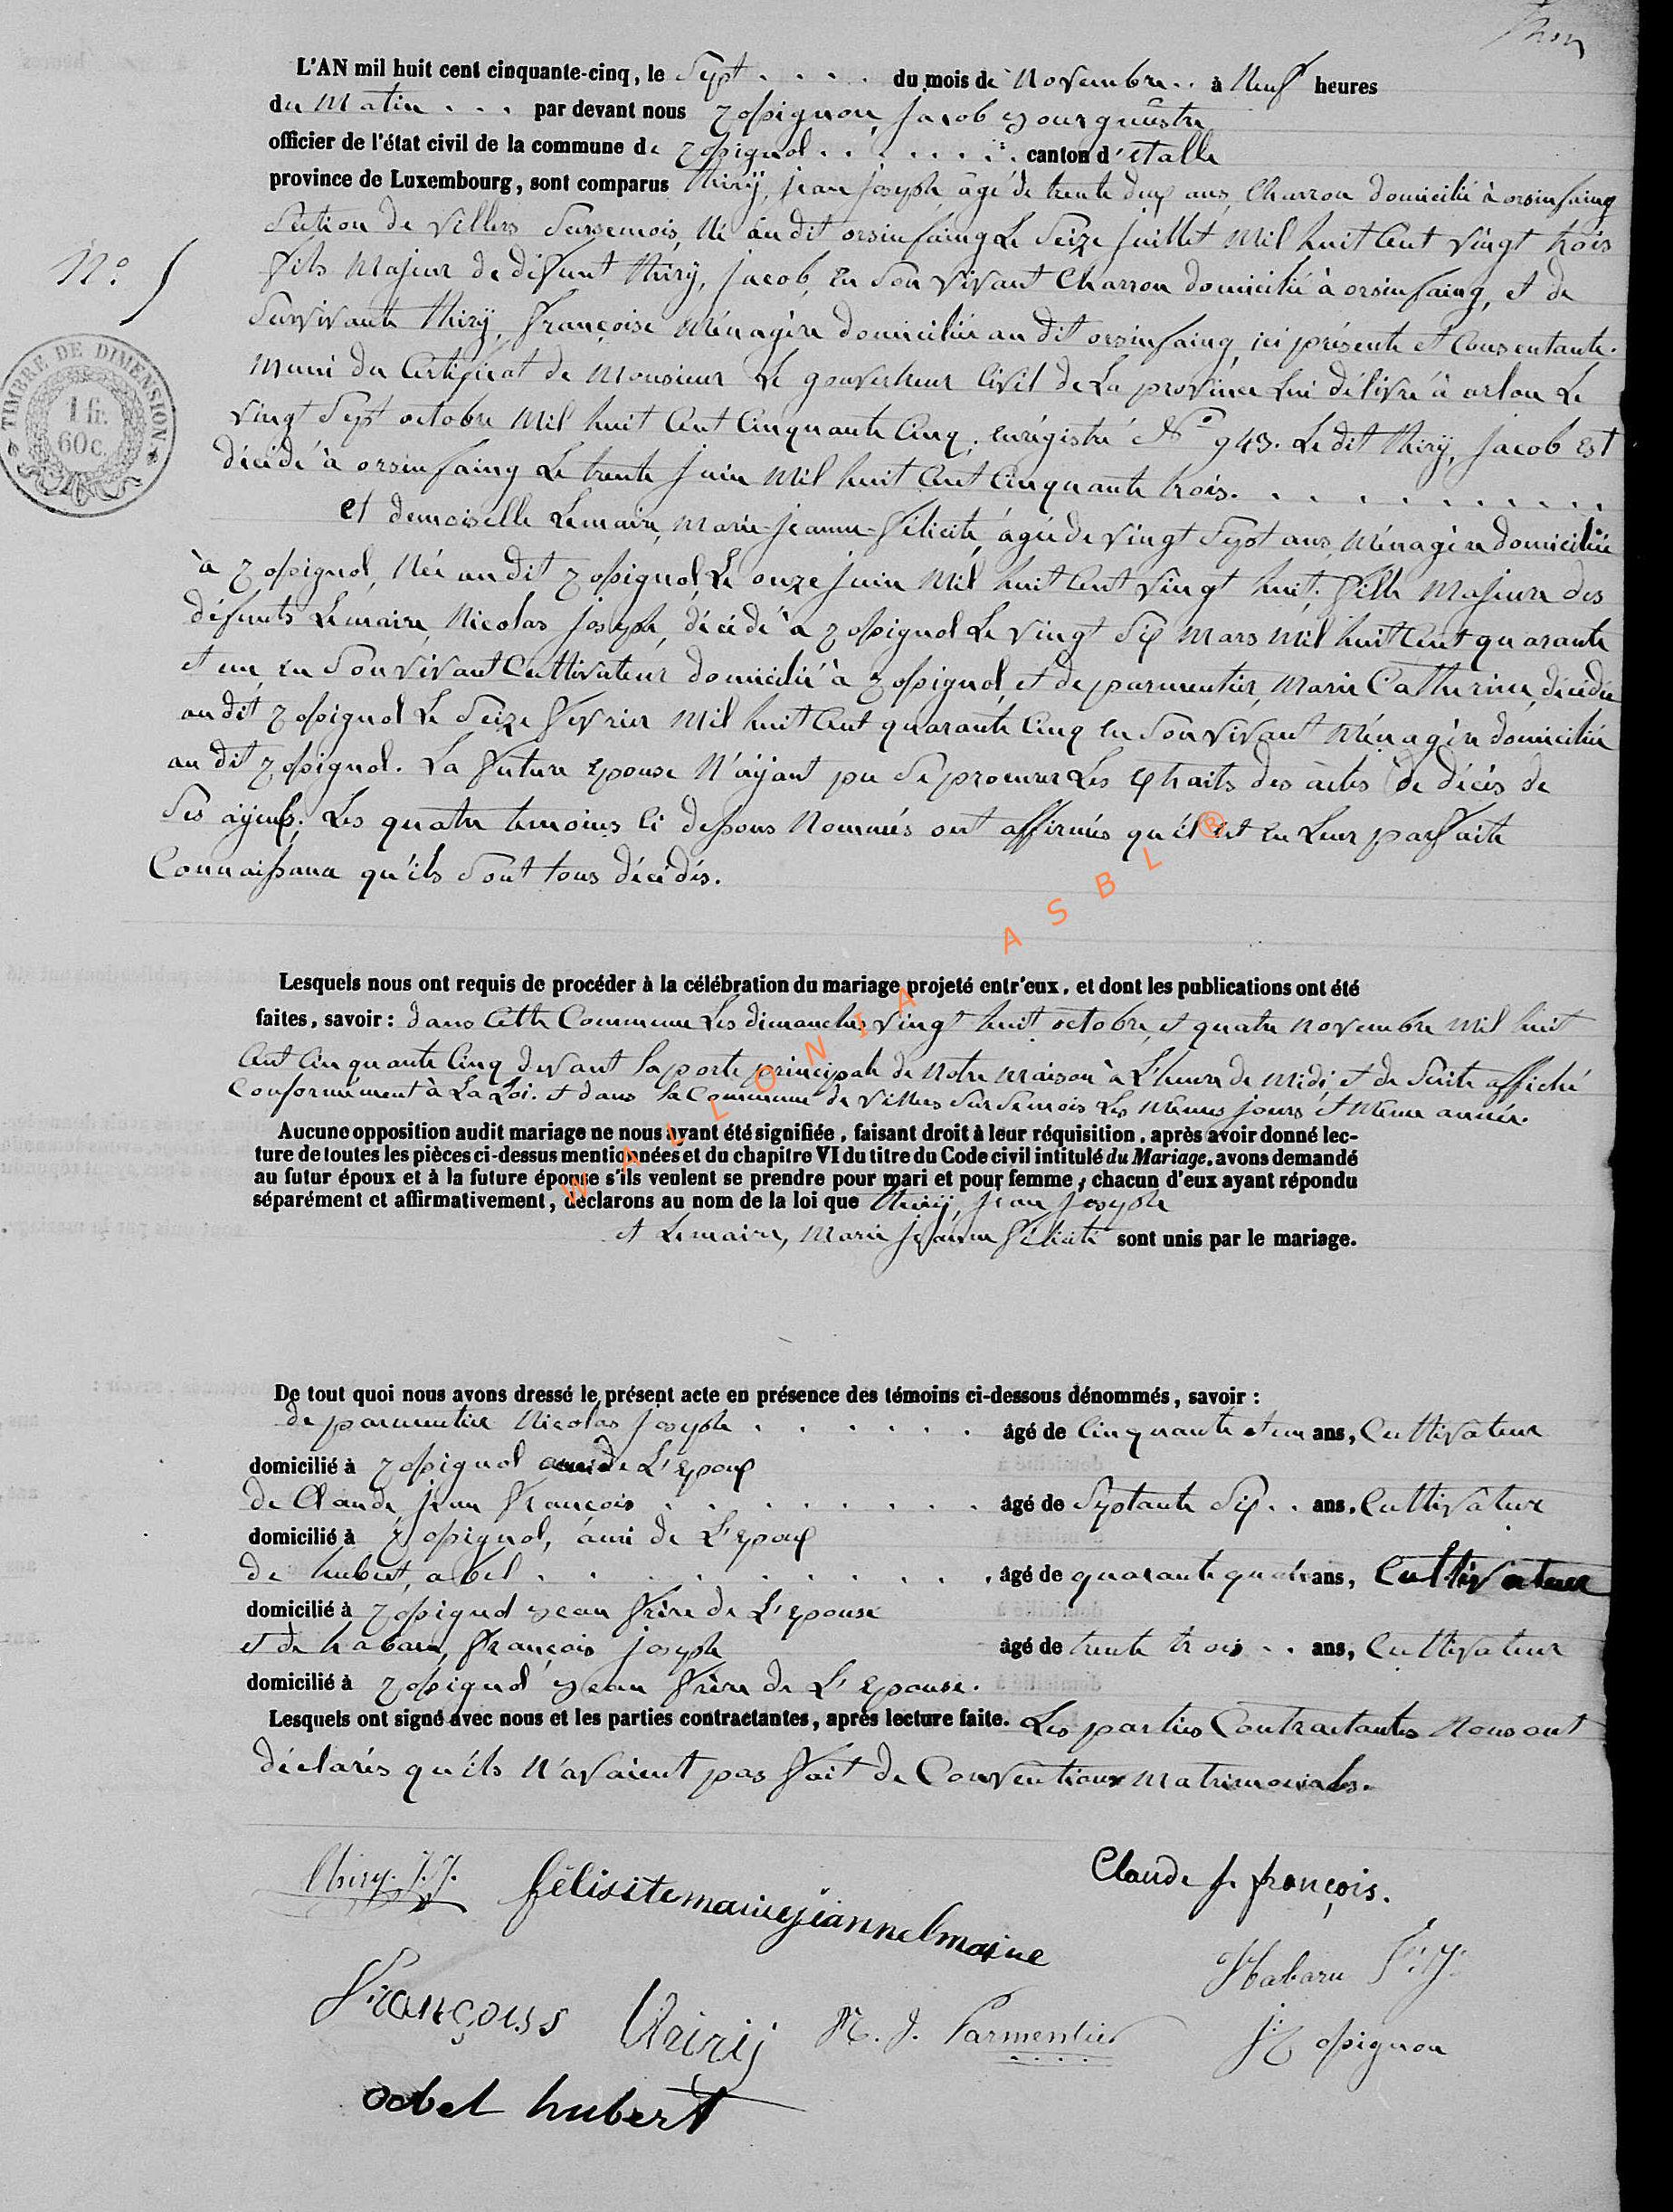 L'AN mil huit cent cinquante-cinq, le Sept . . . . du mois de Novembre . . à Neuf heures
du Matin . . . par devant nous Rossignon, jacob Bourgmestre
officier de l'état civil de la commune de Rossignol . . . . . . . canton d'Etalle
province de Luxembourg, sont comparus thirÿ, jean joseph, âgé de trente deux ans, Charron domicilié à orsinfaing
Section de Villers Sursemois, Né audit orsinfaing Le Seize juillet Mil huit Cent Vingt trois
N.º 5
fils Majeur de défunt thirÿ, jacob, en Son Vivant Charron domicilié à orsinfaing, et de
Survivante thirÿ, françoise Ménagère domiciliée au dit orsinfaing, ici présente et Consentante.
Muni du Certificat de Monsieur Le gouverneur Civil de La province Lui délivré à arlon Le
Vingt Sept octobre Mil huit Cent Cinquante Cinq, enrégistré Nº 943. Le dit thirÿ, jacob est
décédé à orsinfaing Le trente juin Mil huit Cent Cinquante trois. . . . . . . . . . .
TIMBRE DE DIMENSION
1 fr.
60 c.
et demoiselle Lemaire, Marie-jeanne-félicité, âgée de Vingt Sept ans, Ménagère domiciliée
à Rossignol, Née audit Rossignol Le onze juin Mil huit Cent Vingt huit, fille Majeure des
défunts Lemaire, Nicolas joseph, décédé à Rossignol Le Vingt Six Mars Mil huit Cent quarante
et un, en Son vivant Cultivateur domicilié à Rossignol, et de parmentier, Marie Catherine, décédée
au dit Rossignol Le Seize fevrier Mil huit Cent quarante Cinq en Son Vivant Ménagère domiciliée
au dit Rossignol. La future Epouse N'aÿant pu Se procurer Les Extraits des actes de décès de
Ses aÿeuls; Les quatre temoins Ci dessous Nommés ont affirmés qu'il est en Leur parfaite
Connaissance qu'ils Sont tous décédés.
Lesquels nous ont requis de procéder à la célébration du mariage projeté entr'eux, et dont les publications ont été
faites, savoir : dans Cette Commune Les dimanches Vingt huit octobre, et quatre Novembre Mil huit
Cent Cinquante Cinq devant la porte principale de Notre Maison à L'heure de Midi et de Suite affiché
Conformément à La Loi. et dans la Commune de Villers Sur Semois Les Mêmes jours et Même année.
Aucune opposition audit mariage ne nous ayant été signifiée, faisant droit à leur réquisition, après avoir donné lec-
ture de toutes les pièces ci-dessus mentionnées et du chapitre VI du titre du Code civil intitulé du Mariage, avons demandé
au futur époux et à la future épouse s'ils veulent se prendre pour mari et pour femme, chacun d'eux ayant répondu
séparément et affirmativement, déclarons au nom de la loi que thirÿ, jean joseph
et Lemaire, Marie jeanne félicité sont unis par le mariage.
WALLONIA ASBL ®
De tout quoi nous avons dressé le présent acte en présence des témoins ci-dessous dénommés, savoir :
de parmentier Nicolas joseph . . . . . . âgé de Cinquante et un ans, Cultivateur
domicilié à Rossignol ami de L'Epoux
de Claude, jean françois . . . . . . . . . âgé de Septante Six . . ans, Cultivateur
domicilié à Rossignol, ami de L'Epoux
de hubert, abel . . . . . . . . . . âgé de quarante quatre ans, Cultivateur
domicilié à Rossignol Beau frère de L'Epouse
et de habaru, françois joseph âgé de trente trois . . ans, Cultivateur
domicilié à Rossignol Beau frère de L'Epouse.
Lesquels ont signé avec nous et les parties contractantes, après lecture faite. Les parties Contractantes Nous ont
déclarés qu'ils N'avaient pas fait de Conventions Matrimoniales.
Thiry. J. J.
félisitemariejeannelmaire
Claude J. françois.
Habaru F. J.
françoiss thirij
N. J. Parmentier
J. Rossignon
abel hubert